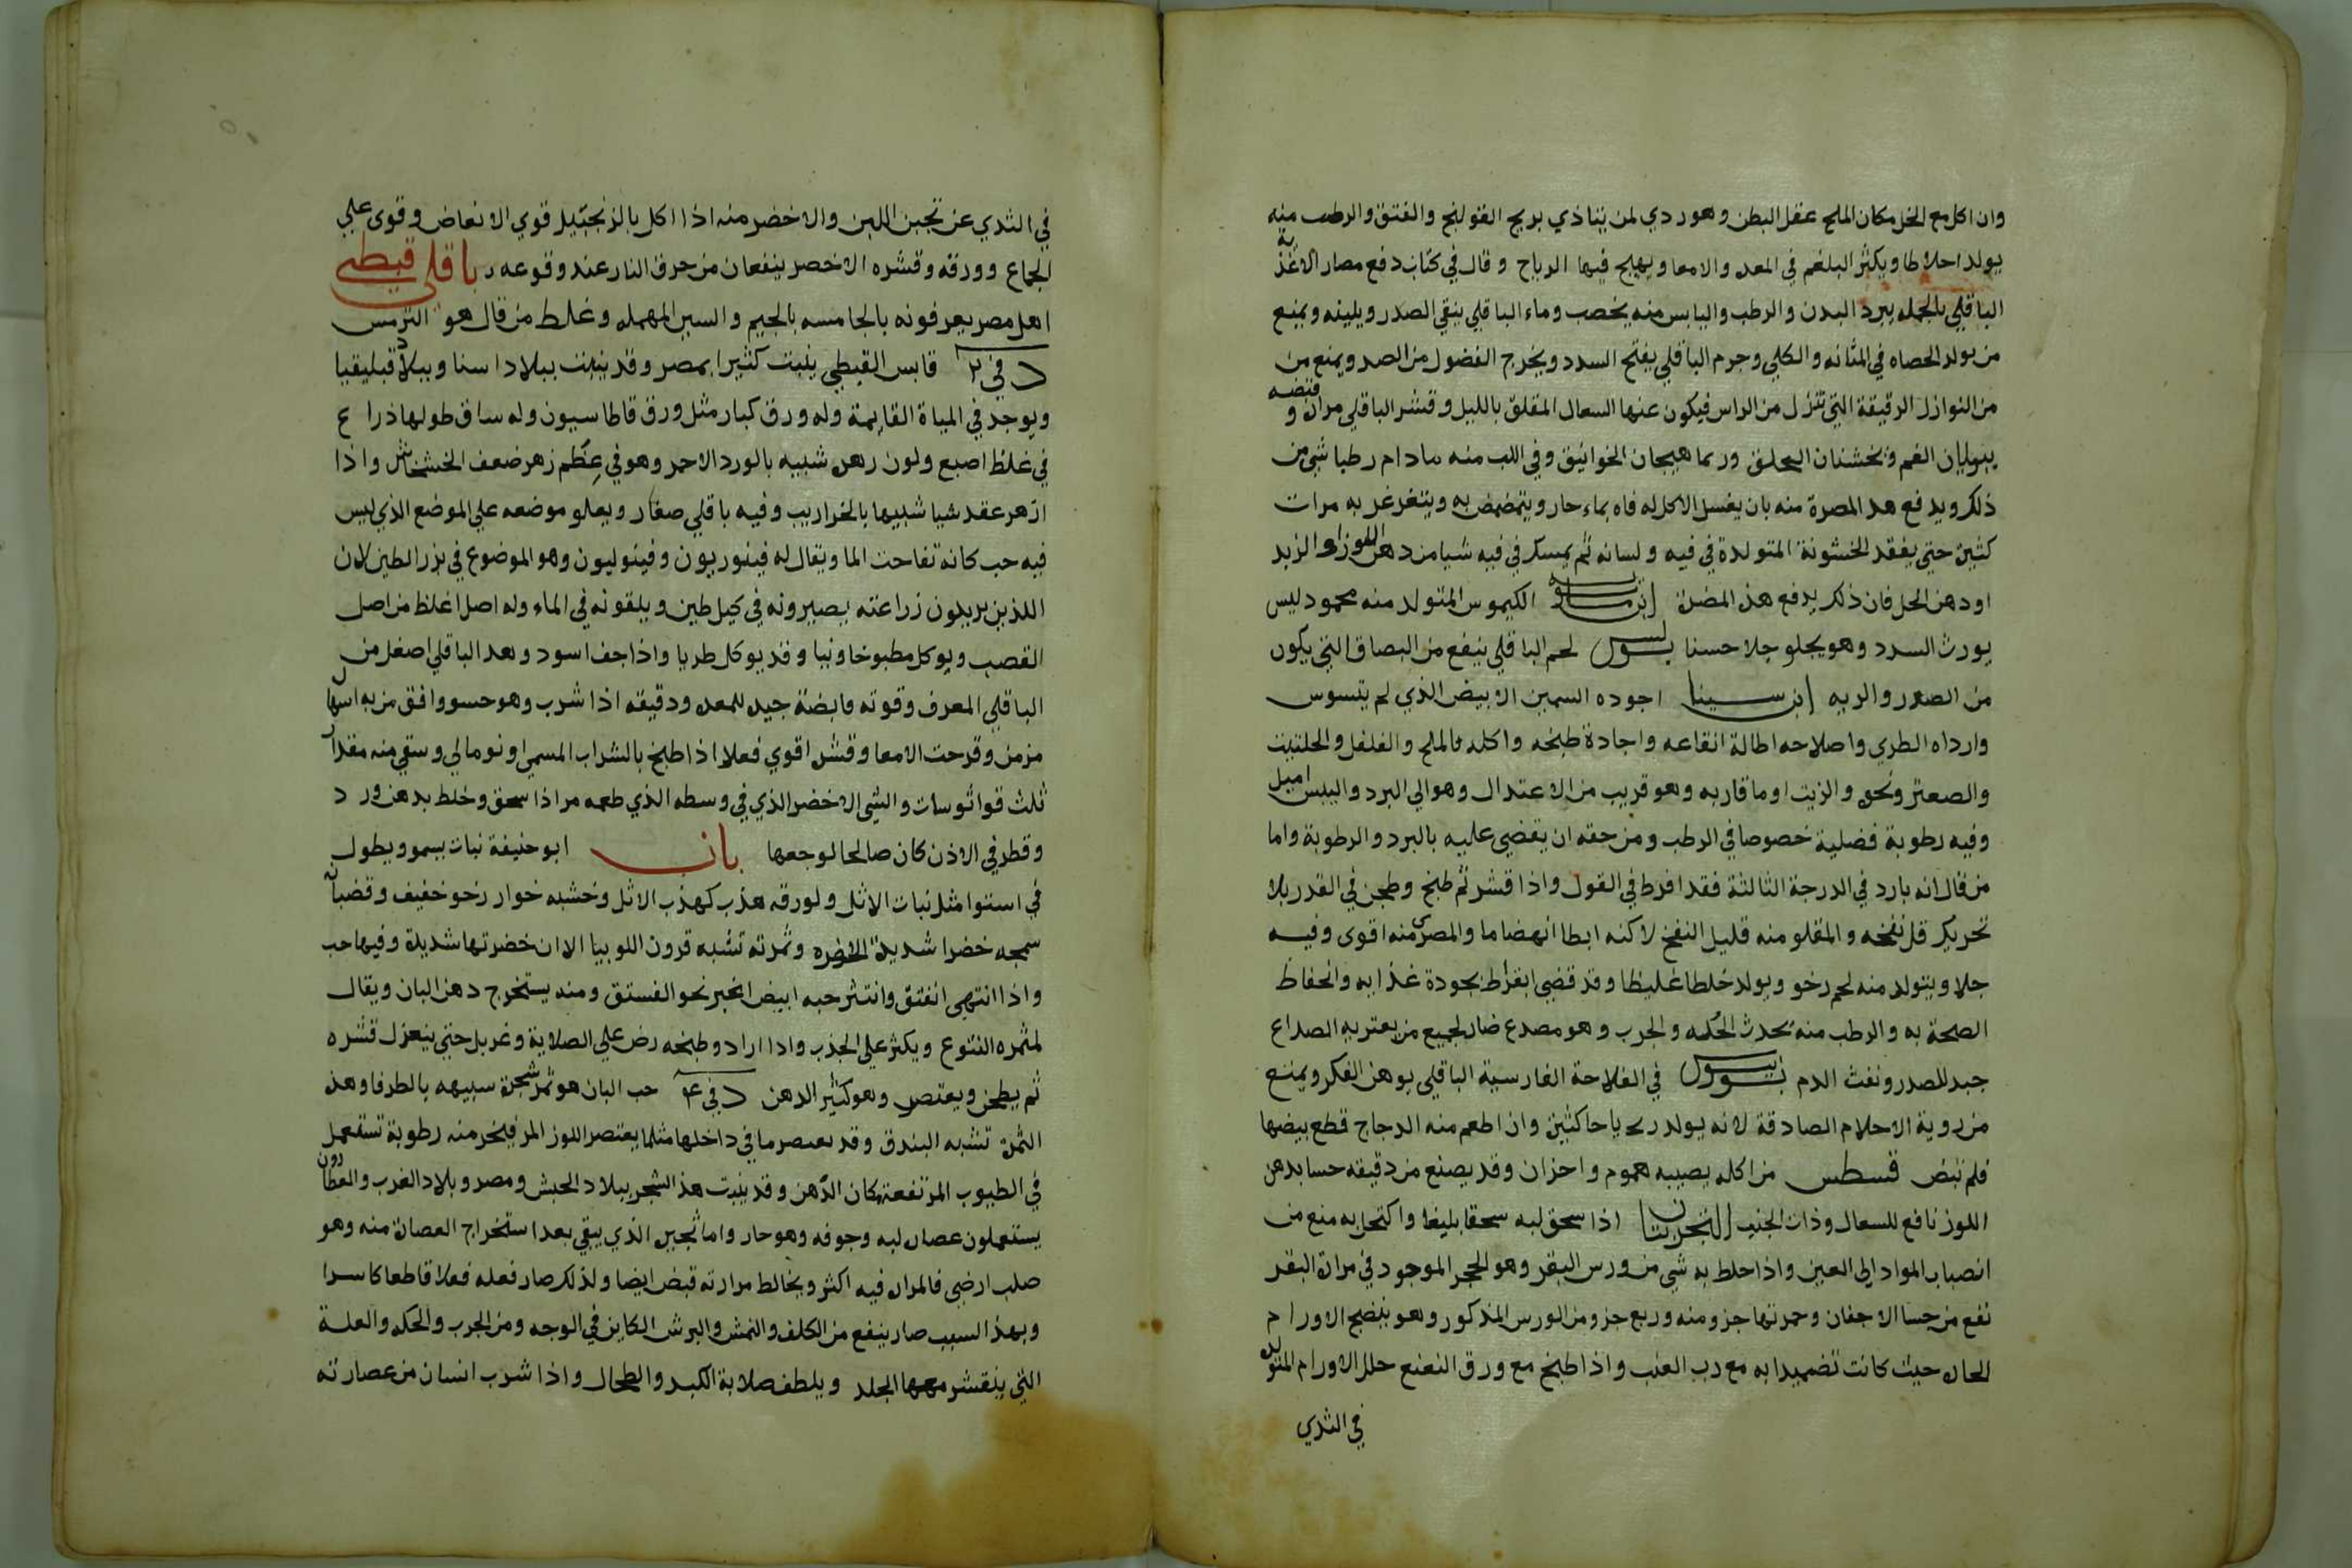 وان اكل مع الخل مكان الملح عقل البطن وهو ردي لمن يتاذي بريح القولنج والفتق والرطب منه
يولد اخلاطا ويكثر البلغم في المعده والامعا ويهيج فيها الرياح وقال في كتاب دفع مضار الاغذية
الباقلي بالجمله يبرد البدن والرطب واليابس منه يخصب وماء الباقلي ينقي الصدر ويلينه ويمنع
من تولد الحصاه في المثانه والكلي وجرم الباقلي يفتح السدد ويخرج الفضول من الصدر ويمنع من
من النوازل الرقيقة التي تنزل من الراس فيكون عنها السعال المقلق بالليل وقشر الباقلي مرارة وقبضه
يثوران الفم ويخشنان الحلق وربما هيجان الخوانيق وفي اللب منه مادام رطبا شي من
ذلك ويدفع هذه المضرة منه بان يغسل الاكل له فاه بماء حار ويتمضمض به ويتغرغر به مرات
كثيرة حتي يفقد الخشونة المتولدة في فيه ولسانه ثم يمسك في فيه شيا من دهن اللوز او الزبد
او دهن الحل فان ذلك يدفع هذه المضرة ابن ماسويه الكيموس المتولد منه محمود ليس
يورث السدد وهو يجلو جلا حسنا بولس لحم الباقلي ينفع من البصاق التي يكون
من الصدر والريه ابن سينا اجوده السمين الابيض الذي لم يتسوس
وارداه الطري واصلاحه اطالة انقاعه واجادة طبخه واكله بالملح والفلفل والحلتيت
والصعتر ونحوه والزيت او ما قاربه وهو قريب من الاعتدال وهو الي البرد واليبس اميل
وفيه رطوبة فضلية خصوصا في الرطب ومن حقه ان يقضي عليه بالبرد والرطوبة واما
من قال انه بارد في الدرجة الثالثة فقد افرط في القول واذا قشر ثم طبخ وطجن في القدر بلا
تحريك قل نفخه والمقلو منه قليل النفخ لاكنه ابطا انهضاما والمصري منه اقوي وفيه
جلا ويتولد منه لحم رخو ويولد خلطا غليظا وقد قضي ابقراط بجودة غذايه وانحفاظ
الصحة به والرطب منه يحدث الحكه والجرب وهو مصدع ضار لجميع من يعتريه الصداع
جيد للصدر ونفث الدم في الفلاحة الفارسية الباقلي يوهن الفكر ويمنع
من روية الاحلام الصادقة لانه يولد رياحا كثيرة وان اطعم منه الدجاج قطع بيضها
فلم تبض قسطس من اكله يصيبه هموم واحزان وقد يصنع من دقيقه حسا بدهن
اللوز نافع للسعال وذات الجنب التجربتان اذا سحق لبه سحقا بليغا واكتحل به منع من
انصباب المواد الي العين واذا خلط به شي من ورس البقر وهو الحجر الموجود في مرارة البقر
نفع من جسا الاجفان وحمرتها جزو منه وربع جزو من الورس المذكور وهو ينضج الاورام
الحارة حيث كانت تضميدا به مع رب العنب واذا طبخ مع ورق النعنع حلل الاورام المتولده
في الثدي
في الثدي عن تجبن اللبن والاخضر منه اذا اكل بالزنجبيل قوي الانعاض وقوي علي
الجماع وورقه وقشره الاخضر ينفعان من حرق النار عند وقوعه باقلي قبطي
اهل مصر يعرفونه بالجامسه بالجيم والسين المهمله وغلط من قال هو الترمس
د في ٢ قابس القبطي ينبت كثيرا بمصر وقد ينبت ببلاد اسيا وببلاد قيليقيا
ويوجد في المياة القايمة وله ورق كبار مثل ورق قاطاسيون وله ساق طولها ذراع
في غلظ اصبع ولون زهره شبيه بالورد الاحمر وهو في عظم زهر ضعف الخشخاش واذا
ازهر عقد شيا شبيها بالخراريب وفيه باقلي صغار ويعلو موضعه علي الموضع الذي ليس
فيه حب كانه نفاحت الما ويقال له فينوريون وفينوليون وهو الموضوع في بزر الطين لان
اللذين يريدون زراعته يصيرونه في كيل طين ويلقونه في الماء وله اصل اغلظ من اصل
القصب ويوكل مطبوخا ونيا وقد يوكل طريا واذا جف اسود وهذا الباقلي اصغر من
الباقلي المعرف وقوته قابضة جيده للمعده ودقيقه اذا شرب وهو حسو وافق من به اسهال
مزمن وقرحت الامعا وقشره اقوي فعلا اذا طبخ بالشراب المسمي اونومالي وسقي منه مقدار
ثلث قوانوسات والشي الاخضر الذي في وسطه الذي طعمه مر اذا سحق وخلط بدهن ورد
وقطر في الاذن كان صالحا لوجعها بان ابو حنيفة نبات يسمو ويطول
في استوا مثل نبات الاثل ولورقه هذب كهذب الاثل وخشبه خوار رخو خفيف وقضبانه
سمجه خضرا شديدة الخضره وثمرته تشبه قرون اللوبيا الا ان خضرتها شديدة وفيها حب
واذا انتهي انفتق وانتثر حبه ابيض اغبر نحو الفستق ومنه يستخرج دهن البان ويقال
لثمره الشوع ويكثر علي الجذب واذا ارادو طبخه رض علي الصلاية وغربل حتي ينعزل قشره
ثم يطحن ويعتصر وهو كثير الدهن د في ٤ حب البان هو ثمر شجرة شبيهه بالطرفا وهذه
الثمرة تشبه البندق وقد يعتصر ما في داخلها مثلما يعتصر اللوز المر فيخرج منه رطوبة تستعمل
في الطيوب المرتفعة مكان الدهن وقد ينبت هذا الشجر ببلاد الحبش ومصر وبلاد الغرب والعطارون
يستعملون عصارة لبه وجوفه وهو حار واما ثجيره الذي يبقي بعد استخراج العصارة منه وهو
صلب ارضي فالمراره فيه اكثر ويخالط مرارته قبض ايضا ولذلك صار فعله فعلا قاطعا كاسرا
وبهذا السبب صار ينفع من الكلف والنمش والبرش الكاين في الوجه ومن الجرب والحكه والعلة
التي ينقشر معها الجلد ويلطف صلابة الكبد والطحال واذا شرب انسان من عصارته